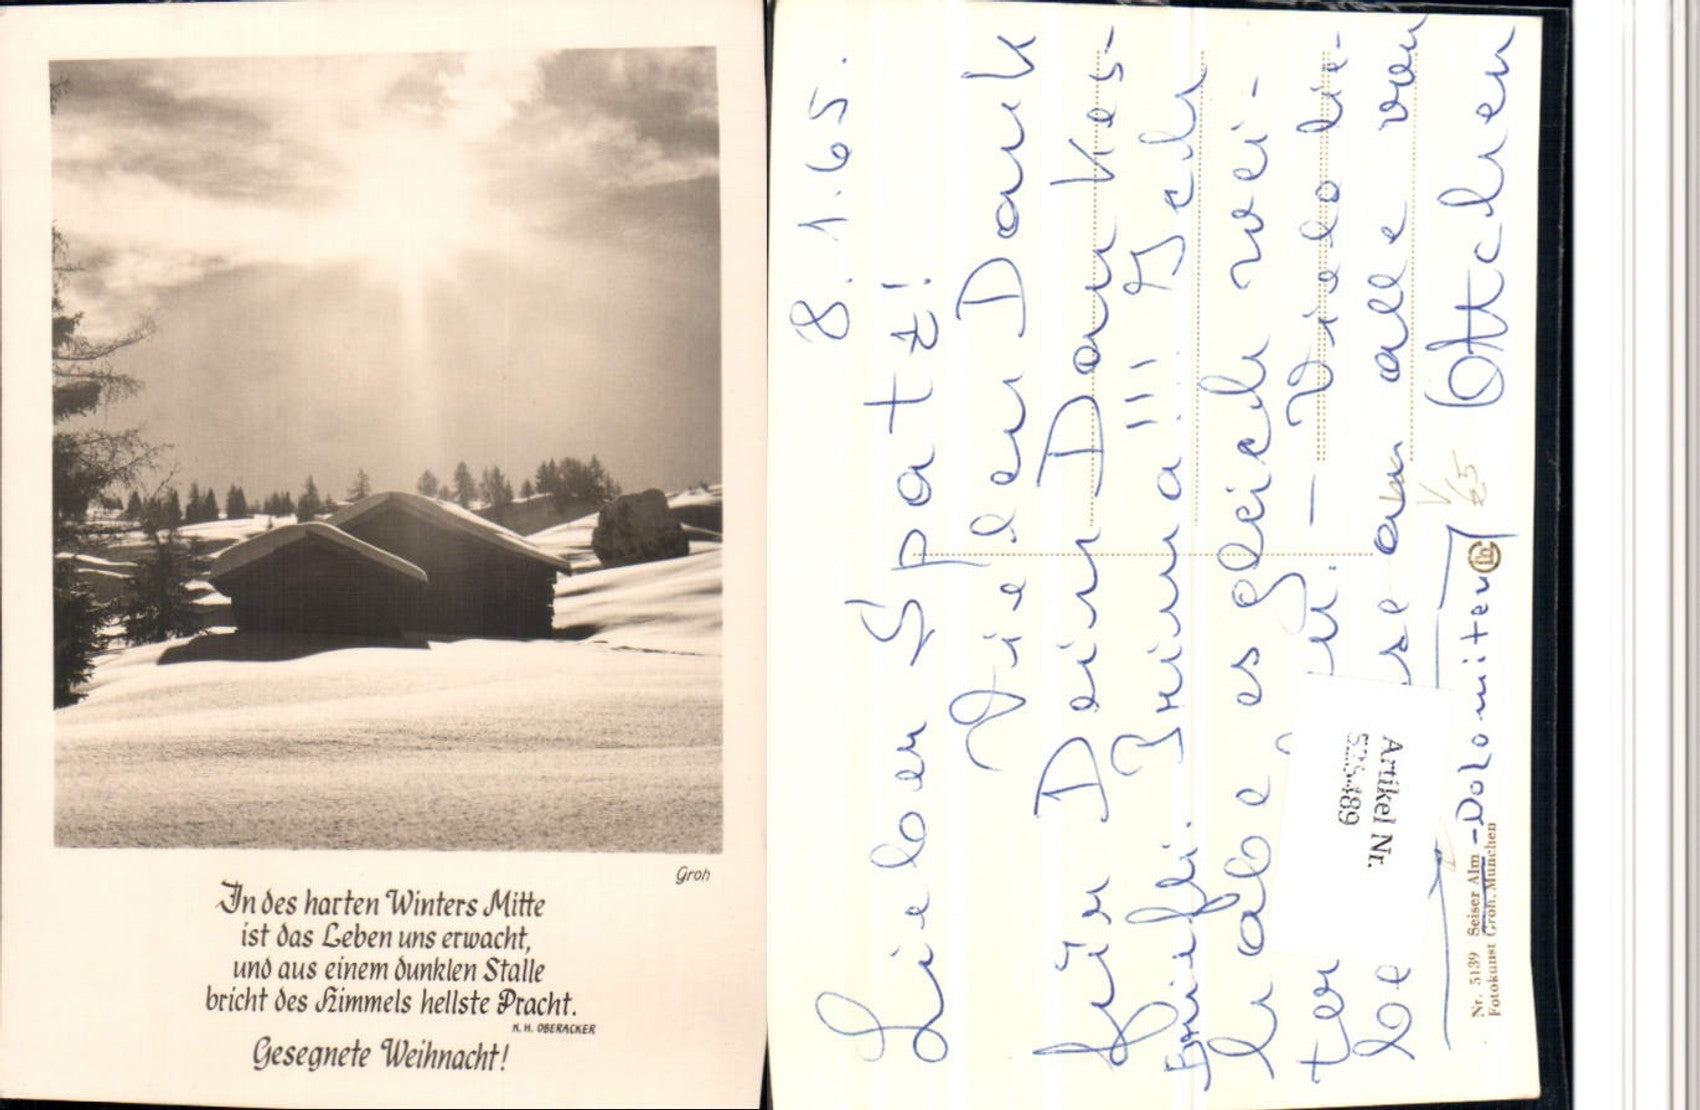 Groh
In des harten Winters Mitte
ist das Leben uns erwacht,
und aus einem dunklen Stalle
bricht des Himmels hellste Pracht.
K. H. OBERACKER
Gesegnete Weihnacht!
8.1.65.
Lieber Spatz!
Vielen Dank
für Dein Dankes-
briefli. Prima!!! Ich
habe es gleich wei-
ter
– Viele lie-
be
an alle von
Ottchen
Artikel Nr.
525489
Nr. 5139 Seiser Alm - Dolomiten
Fotokunst Groh, München